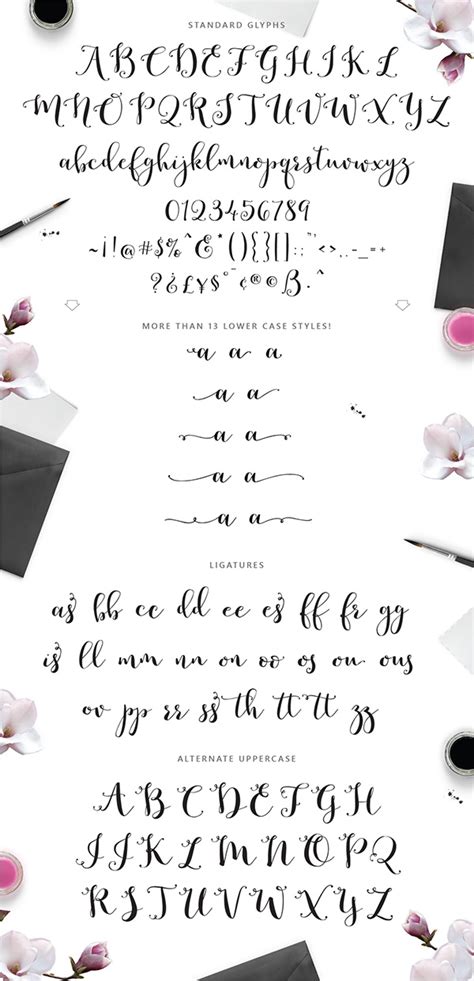 STANDARD GLYPHS
ABCDEFGHIJKL
MNOPQRSTUVWXYZ
abcdefghijklmnopqrstuvwxyz
0123456789
~¡!@#$%^&*(){}[]:;"'<>,.-_=+
?¿£¥$°¯¢®ß.^
MORE THAN 13 LOWER CASE STYLES!
a a a
a a
a a
a a
a a
LIGATURES
as bb cc dd ee es ff fr gg
is ll mm nn on oo os ou ous
ov pp rr ss th tt tt zz
ALTERNATE UPPERCASE
ABCDEFGH
IJKLMNOPQ
RSTUVWXYZ